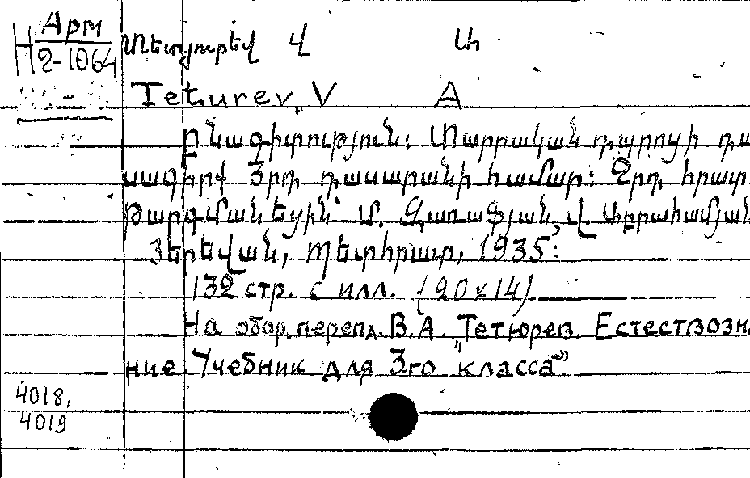 Арт
H 2-1064
Տետյուրեվ Վ Ա
Teturev, V A
Բնագիտություն: Տարրական դպրոցի դա
սագիրք 3րդ դասարանի համար: 2րդ հրատ
Թարգմանեցին՝ Մ.
Յերեվան, Պետհրատ, 1935:
132 стр. с илл. (20x14)
На обор. перепл. В. А. Тетюрев. Естествозна
ние. Учебник для 3го "класса"
4018,
4019